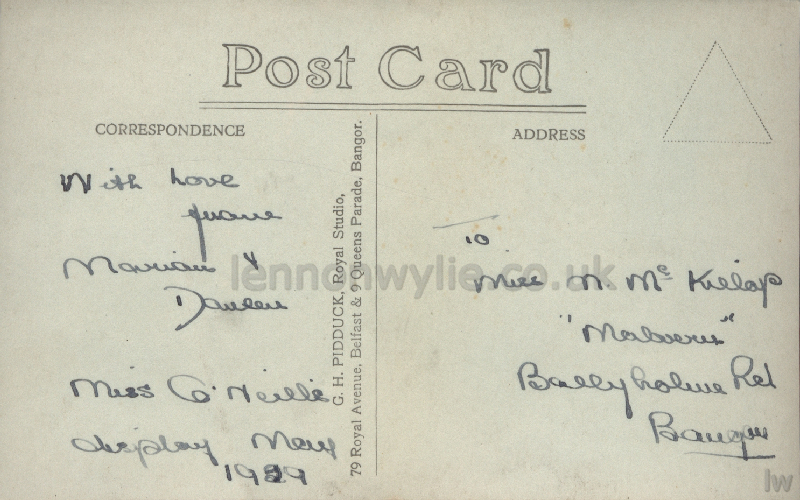 Post Card
CORRESPONDENCE
ADDRESS
With Love
from
Marian &
Doreen
Miss O'Neill's
display May
1929
G. H. PIDDUCK, Royal Studio,
79 Royal Avenue, Belfast & 9 Queens Parade, Bangor.
To
Miss N. McKillop
"Malvern"
Ballyholme Rd
Bangor
lennonwylie.co.uk
lw